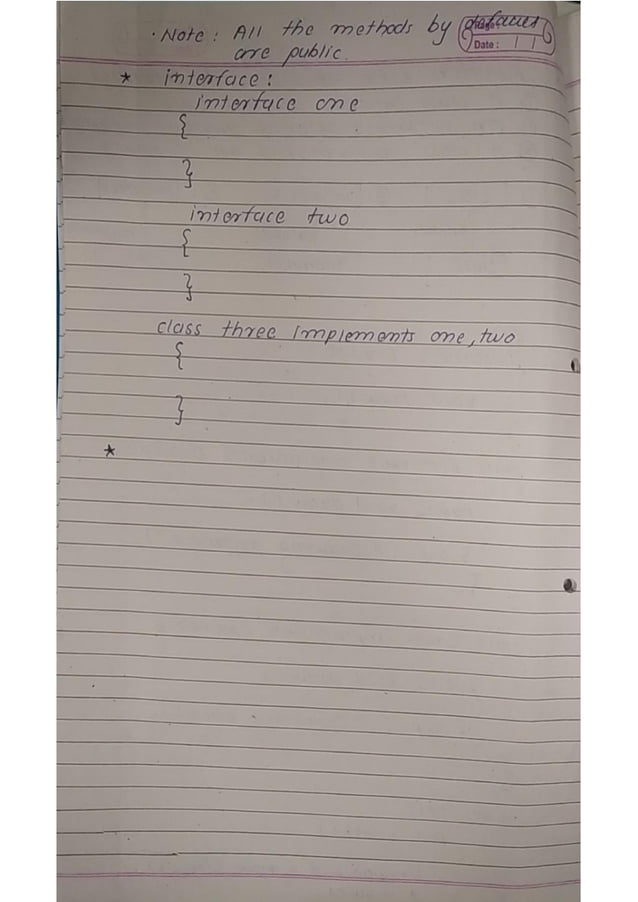 · Note : All the methods by defaules
are public.
* interface :
interface one
{
}
interface two
{
}
class three implements one, two
{
}
*
Date :